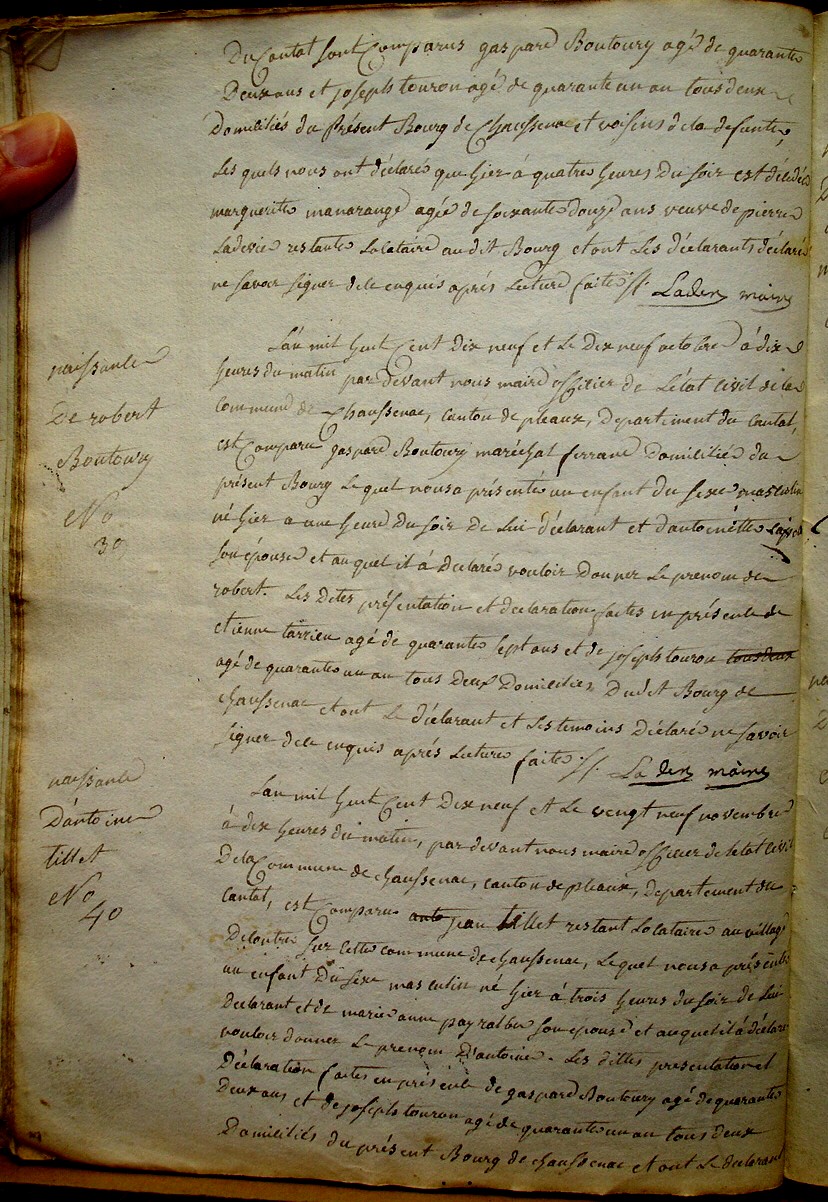 Du Cantal sont Comparus gaspard Boutoury agé de quarante
Deux ans et joseph touron agé de quarante un an tous deux
Domiciliés du présent Bourg de Chaussenac et voisins de la defunte,
Les quels nous ont déclaré que hier à quatre heures Du soir est décédée
marguerite manarange agée de soixante douze ans veuve de pierre
Ladevie restante Locataire audit Bourg et ont Les déclarants déclaré
ne savoir signer de ce enquis aprés Lecture faite //. Laden maire
naissance
De robert
Boutoury
No
39
L'an mil huit Cent Dix neuf et Le Dix neuf octobre à dix
heures du matin par devant nous maire officier de L'état Civil de la
Commune de Chaussenac, canton de pleaux, Departement du Cantal,
est Comparu gaspard Boutoury maréchal ferrand Domicilié du
présent Bourg Lequel nous a présenté un enfant du sexe masculin
né hier a une heure Du soir De Lui déclarant et d'antoinette
son épouse et auquel il á declaré vouloir Donner Le prenom de
robert. Les Dites présentation et declaration faites en présence de
etienne tarrieu agé de quarante sept ans et de joseph touron tous deux
agé de quarante un an tous Deux Domiciliés Dudit Bourg de
Chaussenac et ont Le déclarant et Les temoins Déclaré ne savoir
signer de ce enquis aprés Lecture faite //. Laden maire
naissance
D'antoine
tillet
No
40
L'an mil huit Cent Dix neuf et Le vengt neuf novembre
á dix heures du matin, par devant nous maire officier de l'etát Civil
De la Commune de Chaussenac, canton de pleaux, Departement du
Cantal, est Comparu anto jean tillet restant Locataire au village
De sur cette commune de chaussenac, Lequel nous a présenté
un enfant Du sexe masculin né hier á trois heures du soir de Lui
Declarant et de marieanne payralbe son épouse et auquel il á déclaré
vouloir donner Le prenom D'antoine. Les dittes presentation et
Déclaration faites en présence de gaspard Boutoury agé de quarante
Deux ans et de joseph touron agé de quarante un an tous deux
Domiciliés du présent Bourg de chaussenac et ont Le declarant